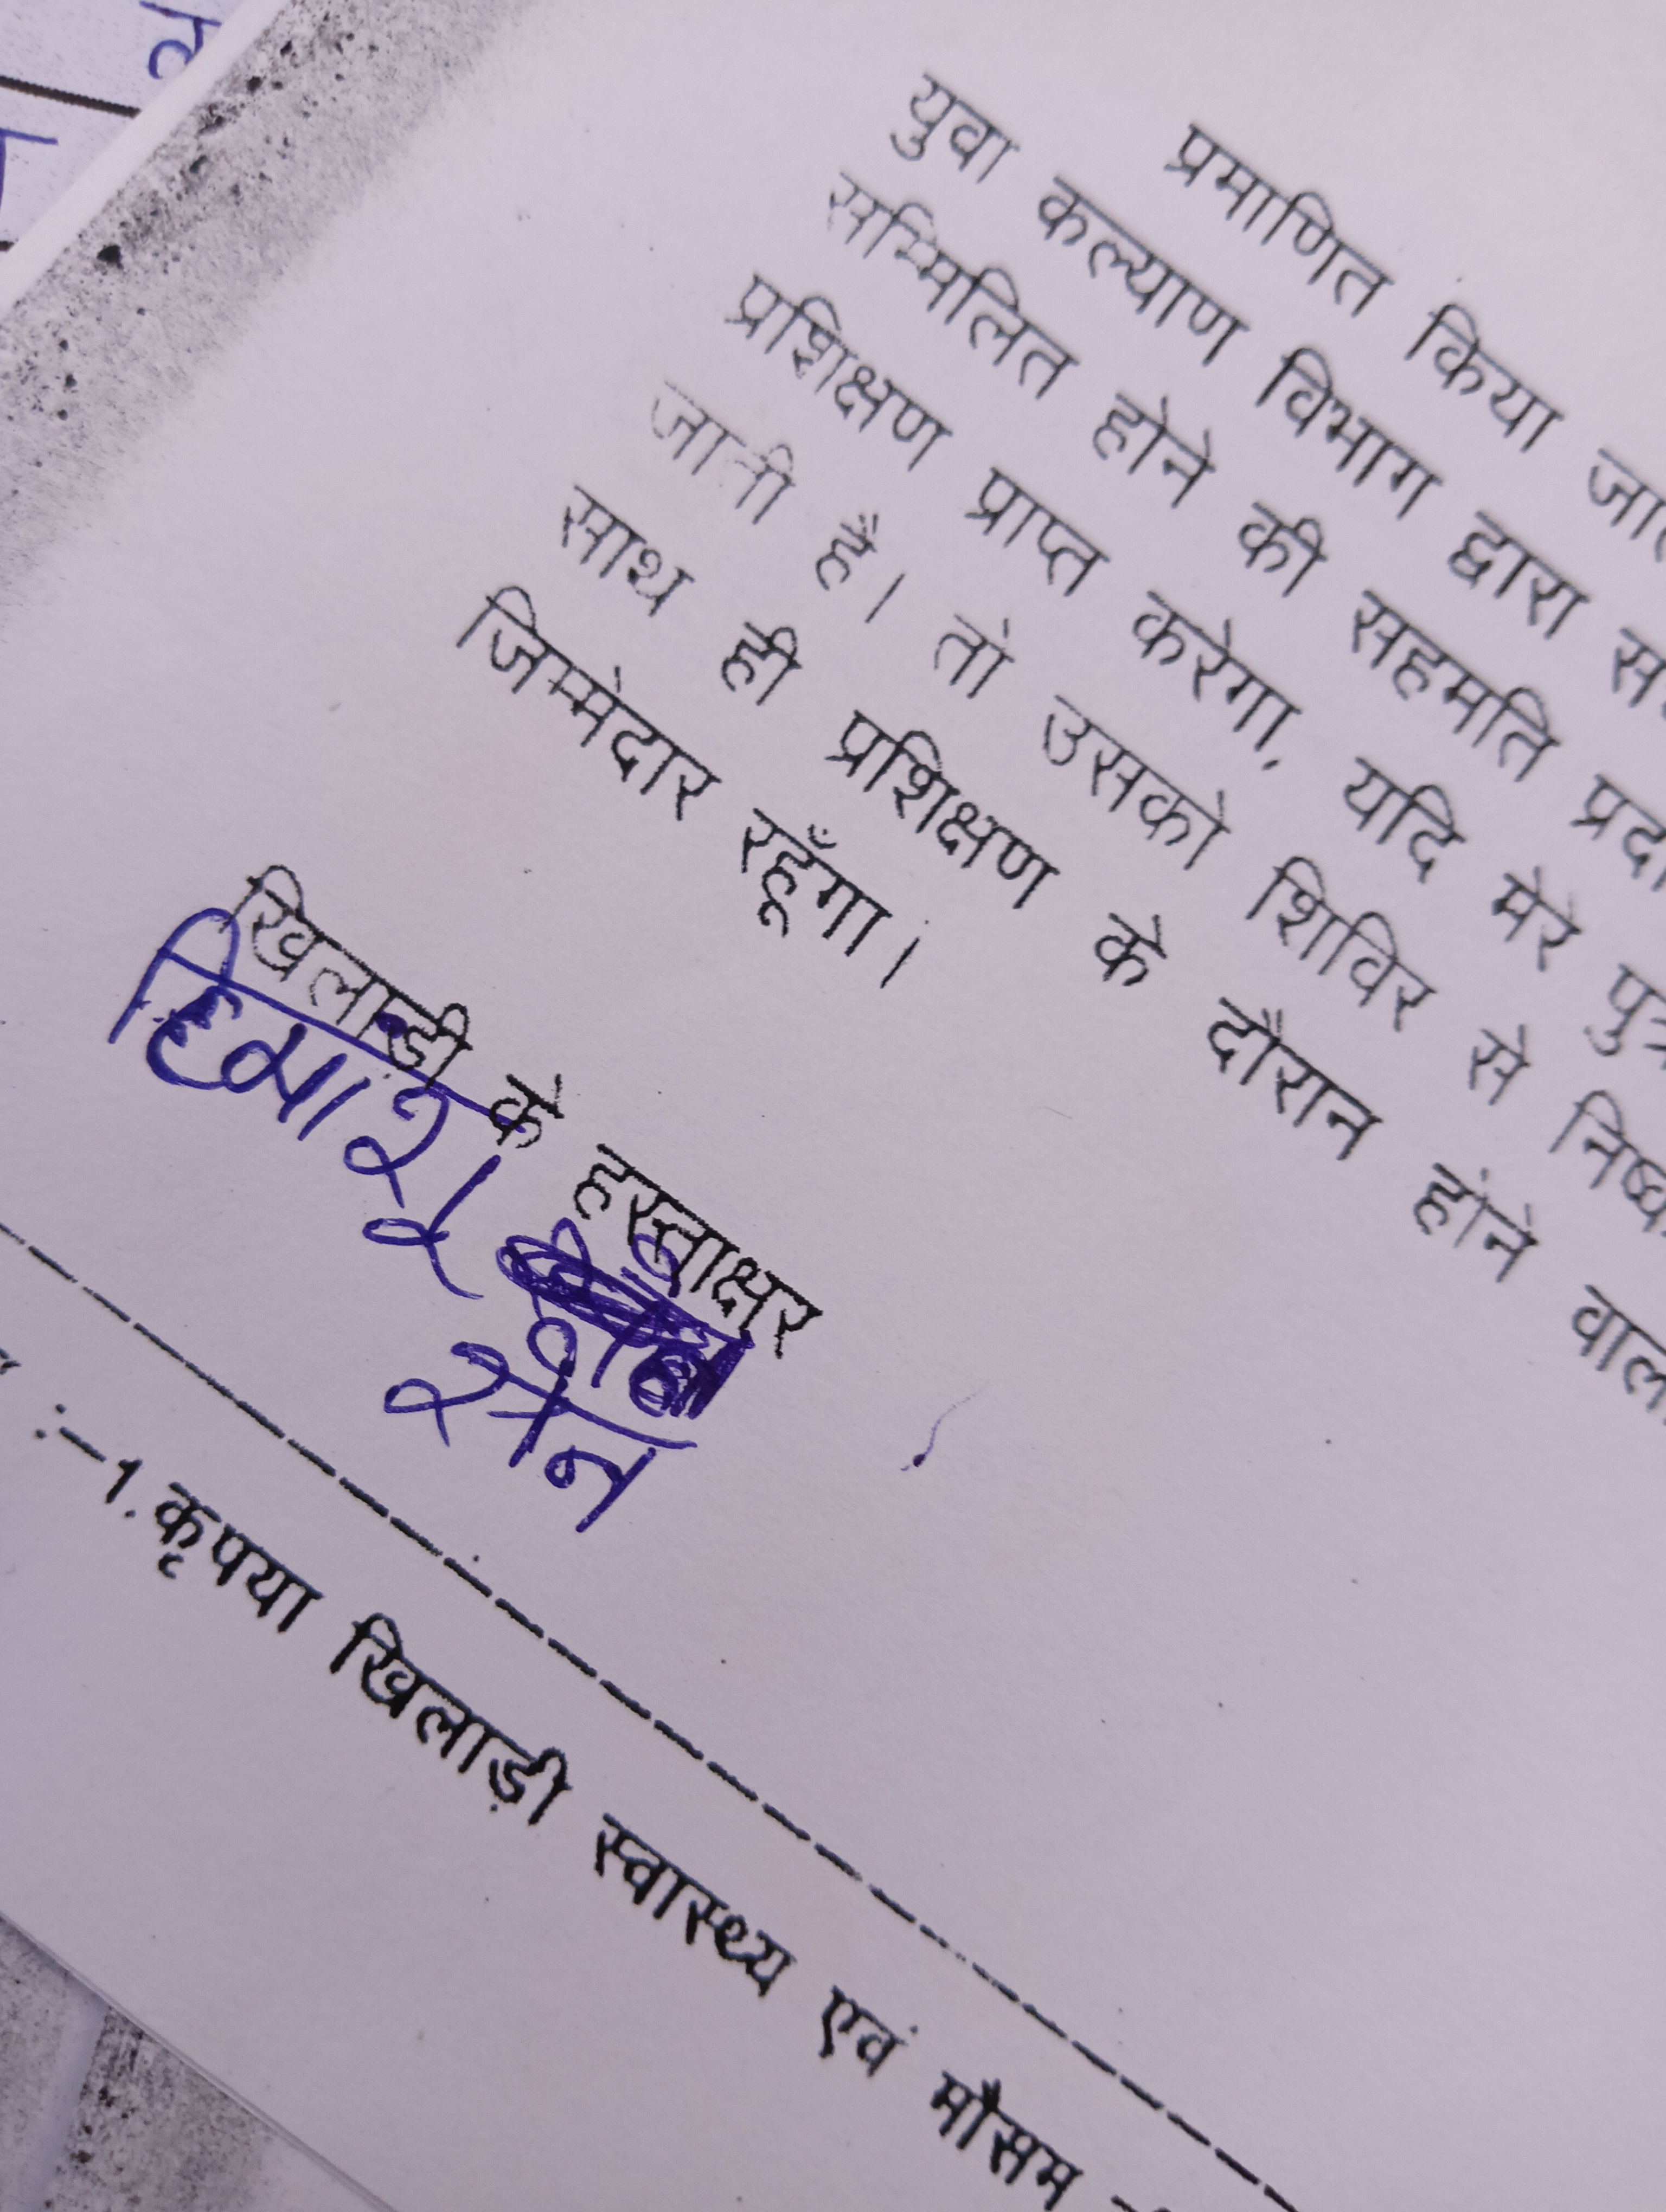 प्रमाणित किया
युवा कल्याण विभाग द्वारा
सम्मिलित होने की सहमति
प्रशिक्षण प्राप्त करेगा, यदि मेरे
जानी है। तो उसको शिविर से
साथ ही प्रशिक्षण के दौरान होने
जिम्मेदार रहूँगा।
खिलाड़ी के हस्ताक्षर
हिमांशु
सेन
:-1. कृपया खिलाड़ी स्वास्थ्य एवं मौसम